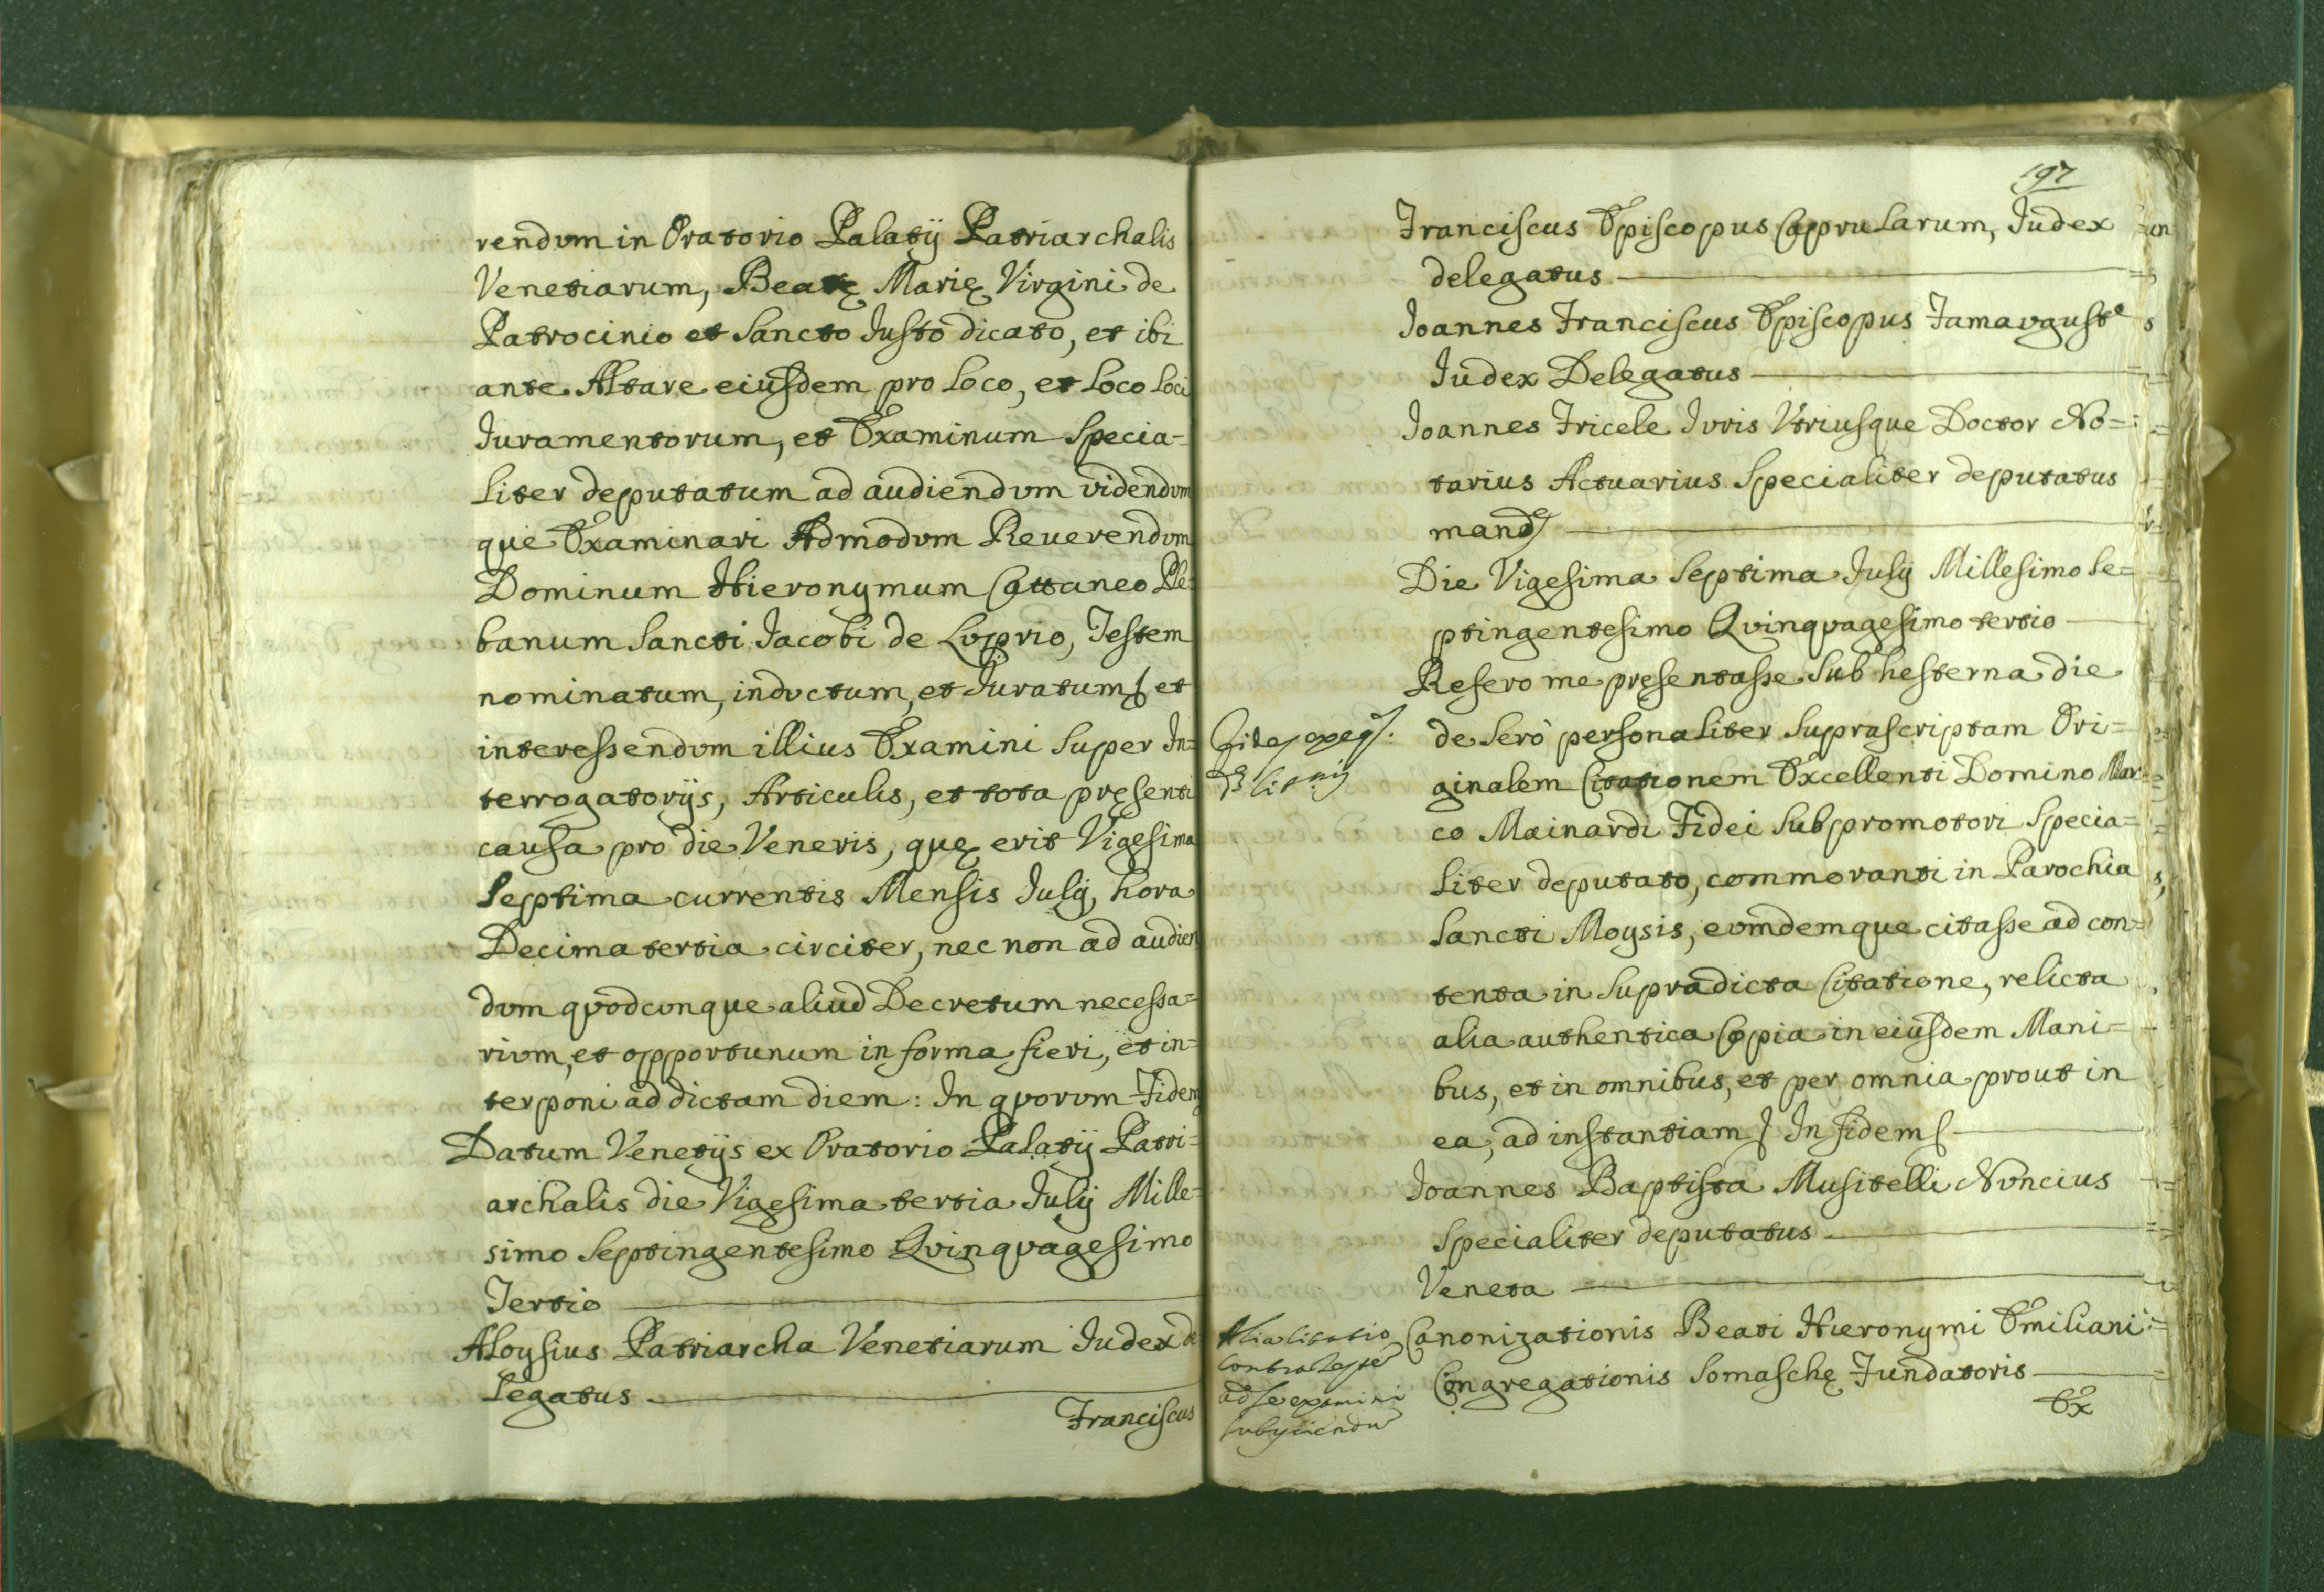 rendum in Oratorio Palatij Patriarchalis
Venetiarum, Beatę Marię Virgini de
Patrocinio et Sancto Justo dicato, et ibi
ante Altare eiusdem pro loco, et loco loci
Juramentorum, et Examinum specia=
liter deputatum ad audiendum videndum
que Examinari Admodum Reuerendum
Dominum Hieronymum Cattaneo Ple=
banum Sancti Jacobi de Luprio, Testem
nominatum, inductum, et Juratum et
interessendum illius Examini super In=
terrogatorijs, Articulis, et tota pręsenti
causa pro die Veneris, quę erit Vigesima
septima currentis Mensis Julij, hora
Decima tertia circiter, nec non ad audien
dum quodcunque aliud Decretum necessa=
rium, et opportunum in forma fieri, et in=
terponi ad dictam diem: In quorum Fidem
Datum Venetijs ex Oratorio Palatij Patri=
archalis die Vigesima tertia Julij Mille=
simo Septingentesimo Quinquagesimo
Tertio
Aloysius Patriarcha Venetiarum Judex de
legatus
Franciscus
197
Franciscus Episcopus Caprularum, Judex
delegatus
Joannes Franciscus Episcopus Famaugustę
Judex Delegatus
Joannes Fricele Juris Utriusque Doctor No=
tarius Actuarius Specialiter deputatus
mand
Die Vigesima Septima Julij Millesimo Se=
ptingentesimo Quinquagesimo tertio
Refero me presentasse sub hesterna die
de sero personaliter suprascriptam Ori=
ginalem Citationem Excellenti Domino Mar=
co Mainardi Fidei Subpromotori Specia=
liter deputato, commoranti in Parochia
Sancti Moysis, eumdemque citasse ad con=
tenta in supradicta Citatione, relicta
alia authentica Copia in eiusdem Mani=
bus, et in omnibus, et per omnia prout in
ea, ad instantiam In fidem
Joannes Baptista Musitelli Nuncius
Specialiter deputatus
Veneta
Alia Citatio
contra Testem
ad se examini
subijciendum
Canonizationis Beati Hieronymi Emiliani
Congregationis Somaschę Fundatoris
Ex